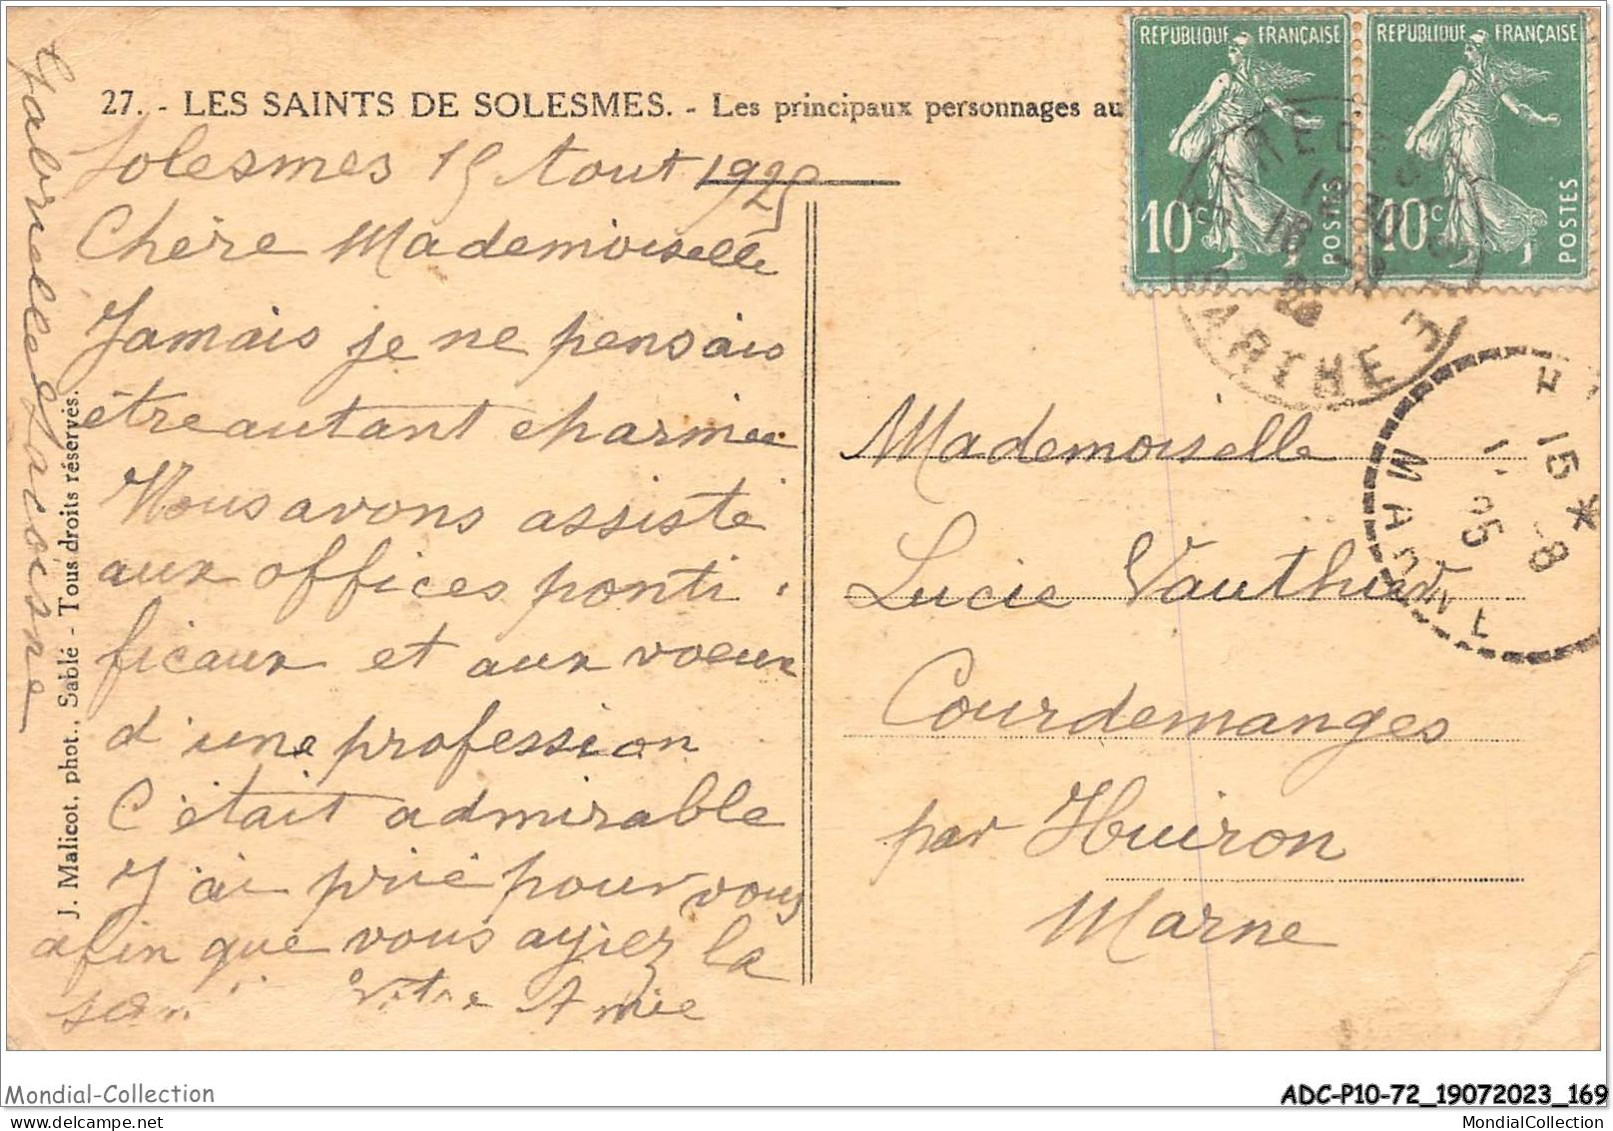 27. - LES SAINTS DE SOLESMES. - Les principaux personnages au
Solesmes 15 Aout 1925
Chère Mademoiselle
Jamais je ne pensais
être autant charmée
Nous avons assisté
aux offices ponti
ficaux et aux voeux
d'une profession
C'était admirable
J'ai prié pour vous
afin que vous ayiez la
Votre Amie
Gabrielle
J. Malicot, phot., Sablé - Tous droits réservés.
REPUBLIQUE FRANÇAISE
10c POSTES
REPUBLIQUE FRANÇAISE
10c POSTES
SARTHE
MARNE
Mademoiselle
Lucie Vauthier
Courdemanges
par Huiron
Marne
Mondial-Collection
ADC-P10-72_19072023_169
MondialCollection